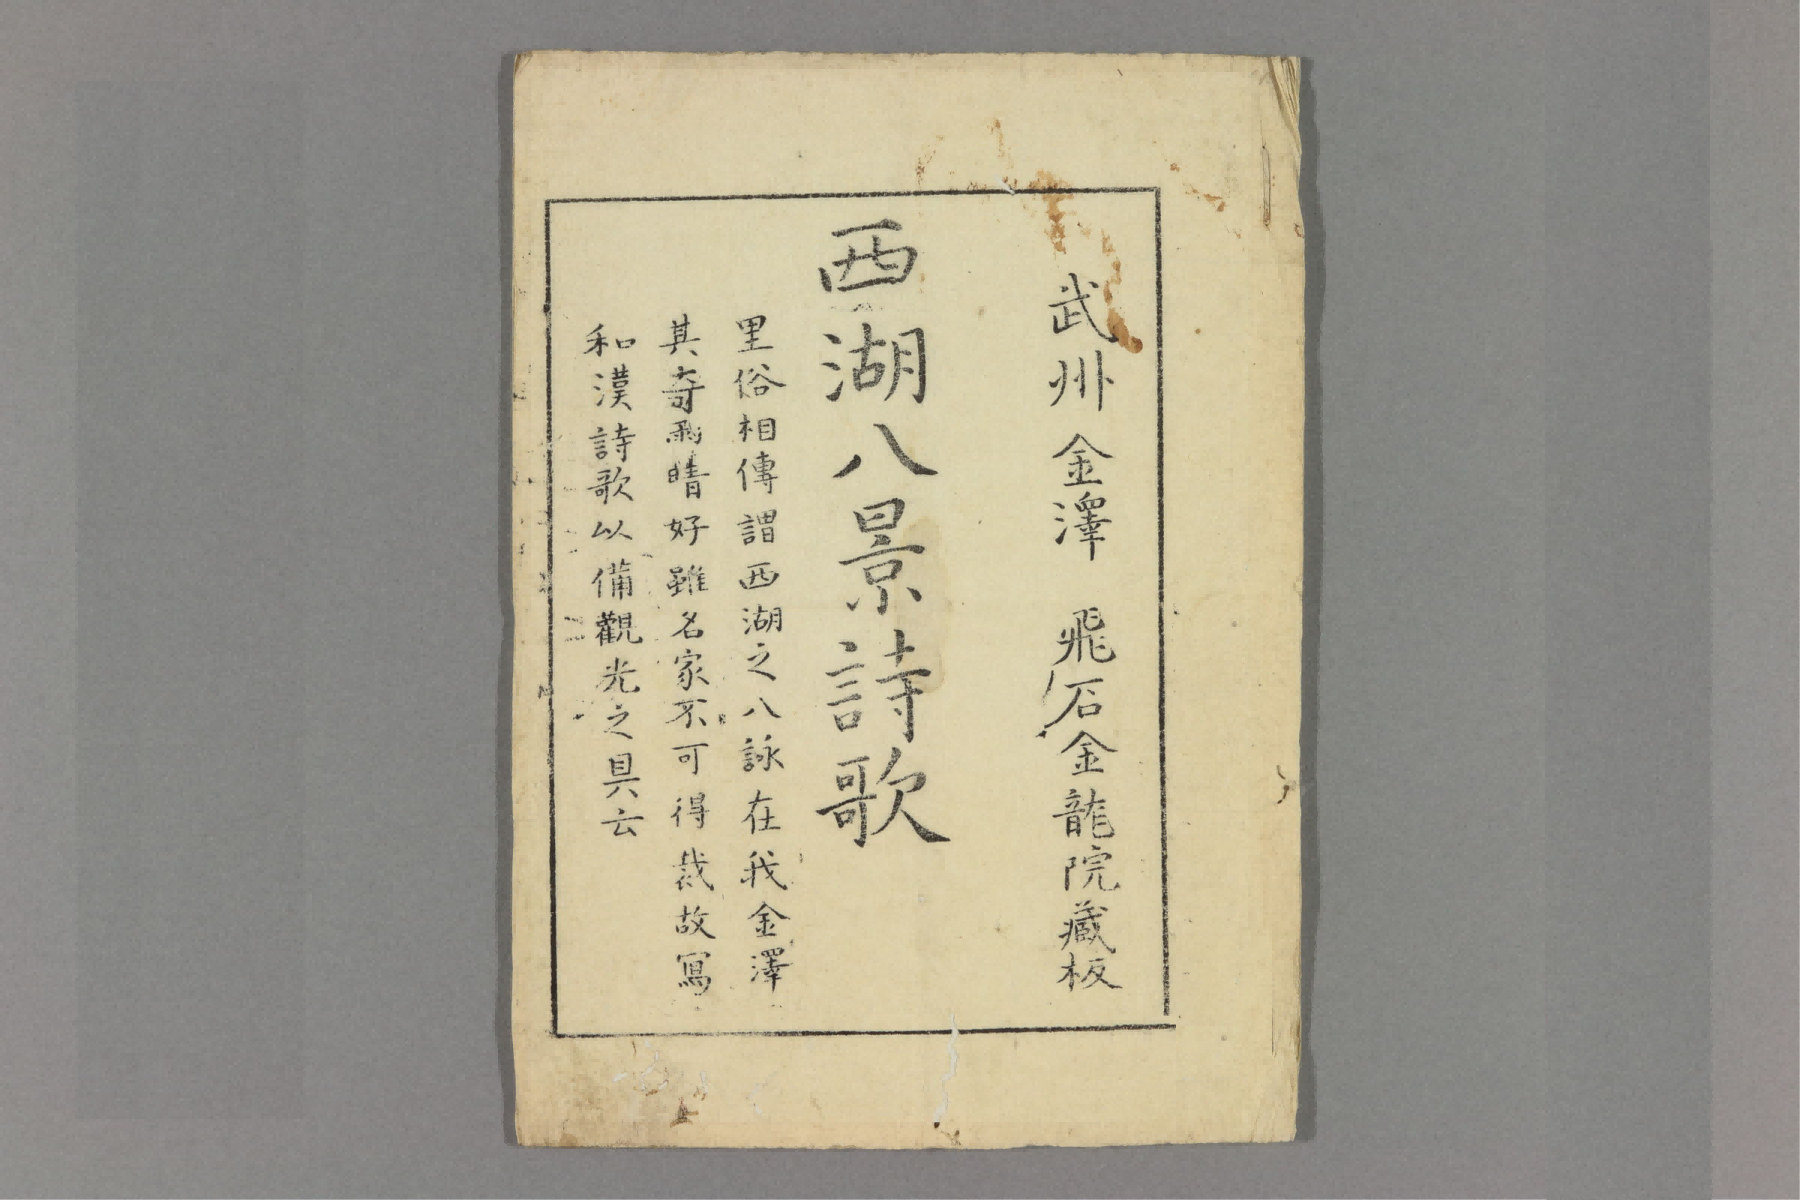 武州金澤 飛石金龍院藏板
西湖八景詩歌
里俗相傳謂西湖之八詠在我金澤
其奇雨晴好雖名家不可得裁故寫
和漢詩歌以備觀光之具云